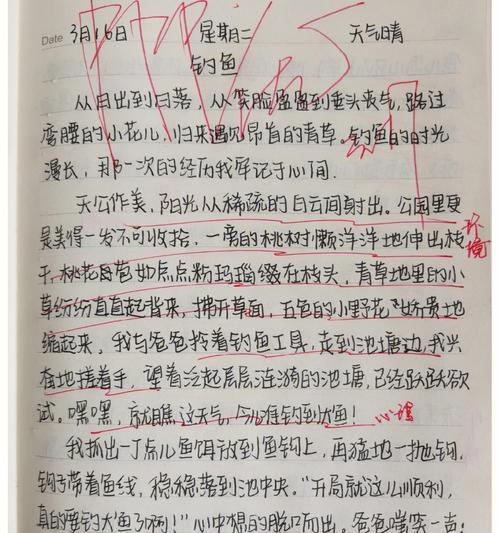 Date 3月16日 星期二 天气晴
钓鱼
从日出到日落，从笑脸盈盈到垂头丧气，路过
弯腰的小花儿，归来遇见昂首的青草。钓鱼的时光
漫长，那一次的经历我牢记于心间.
天公作美，阳光从稀疏的白云间射出。公园里更
是美得一发不可收拾，一旁的桃树懒洋洋地伸出枝
环境
干，桃花苞如点点粉玛瑙缀在枝头，青草地里的小
草纷纷直起背来，拂开草面，五色的小野花娇贵地
缩起来，我与爸爸拎着钓鱼工具，走到池塘边，我兴
奋地搓着手，望着泛起层层涟漪的池塘，已经跃跃欲
试。嘿嘿，就瞧这天气，今儿准钓到大鱼！
心理
我抓出一丁点儿鱼饵放到鱼钩上，再猛地一抛钩，
钩子带着鱼线，稳稳落到池中央。“开局就这儿顺利，
真的要钓大鱼了啊！”心中想的脱口而出。爸爸嗤笑一声：